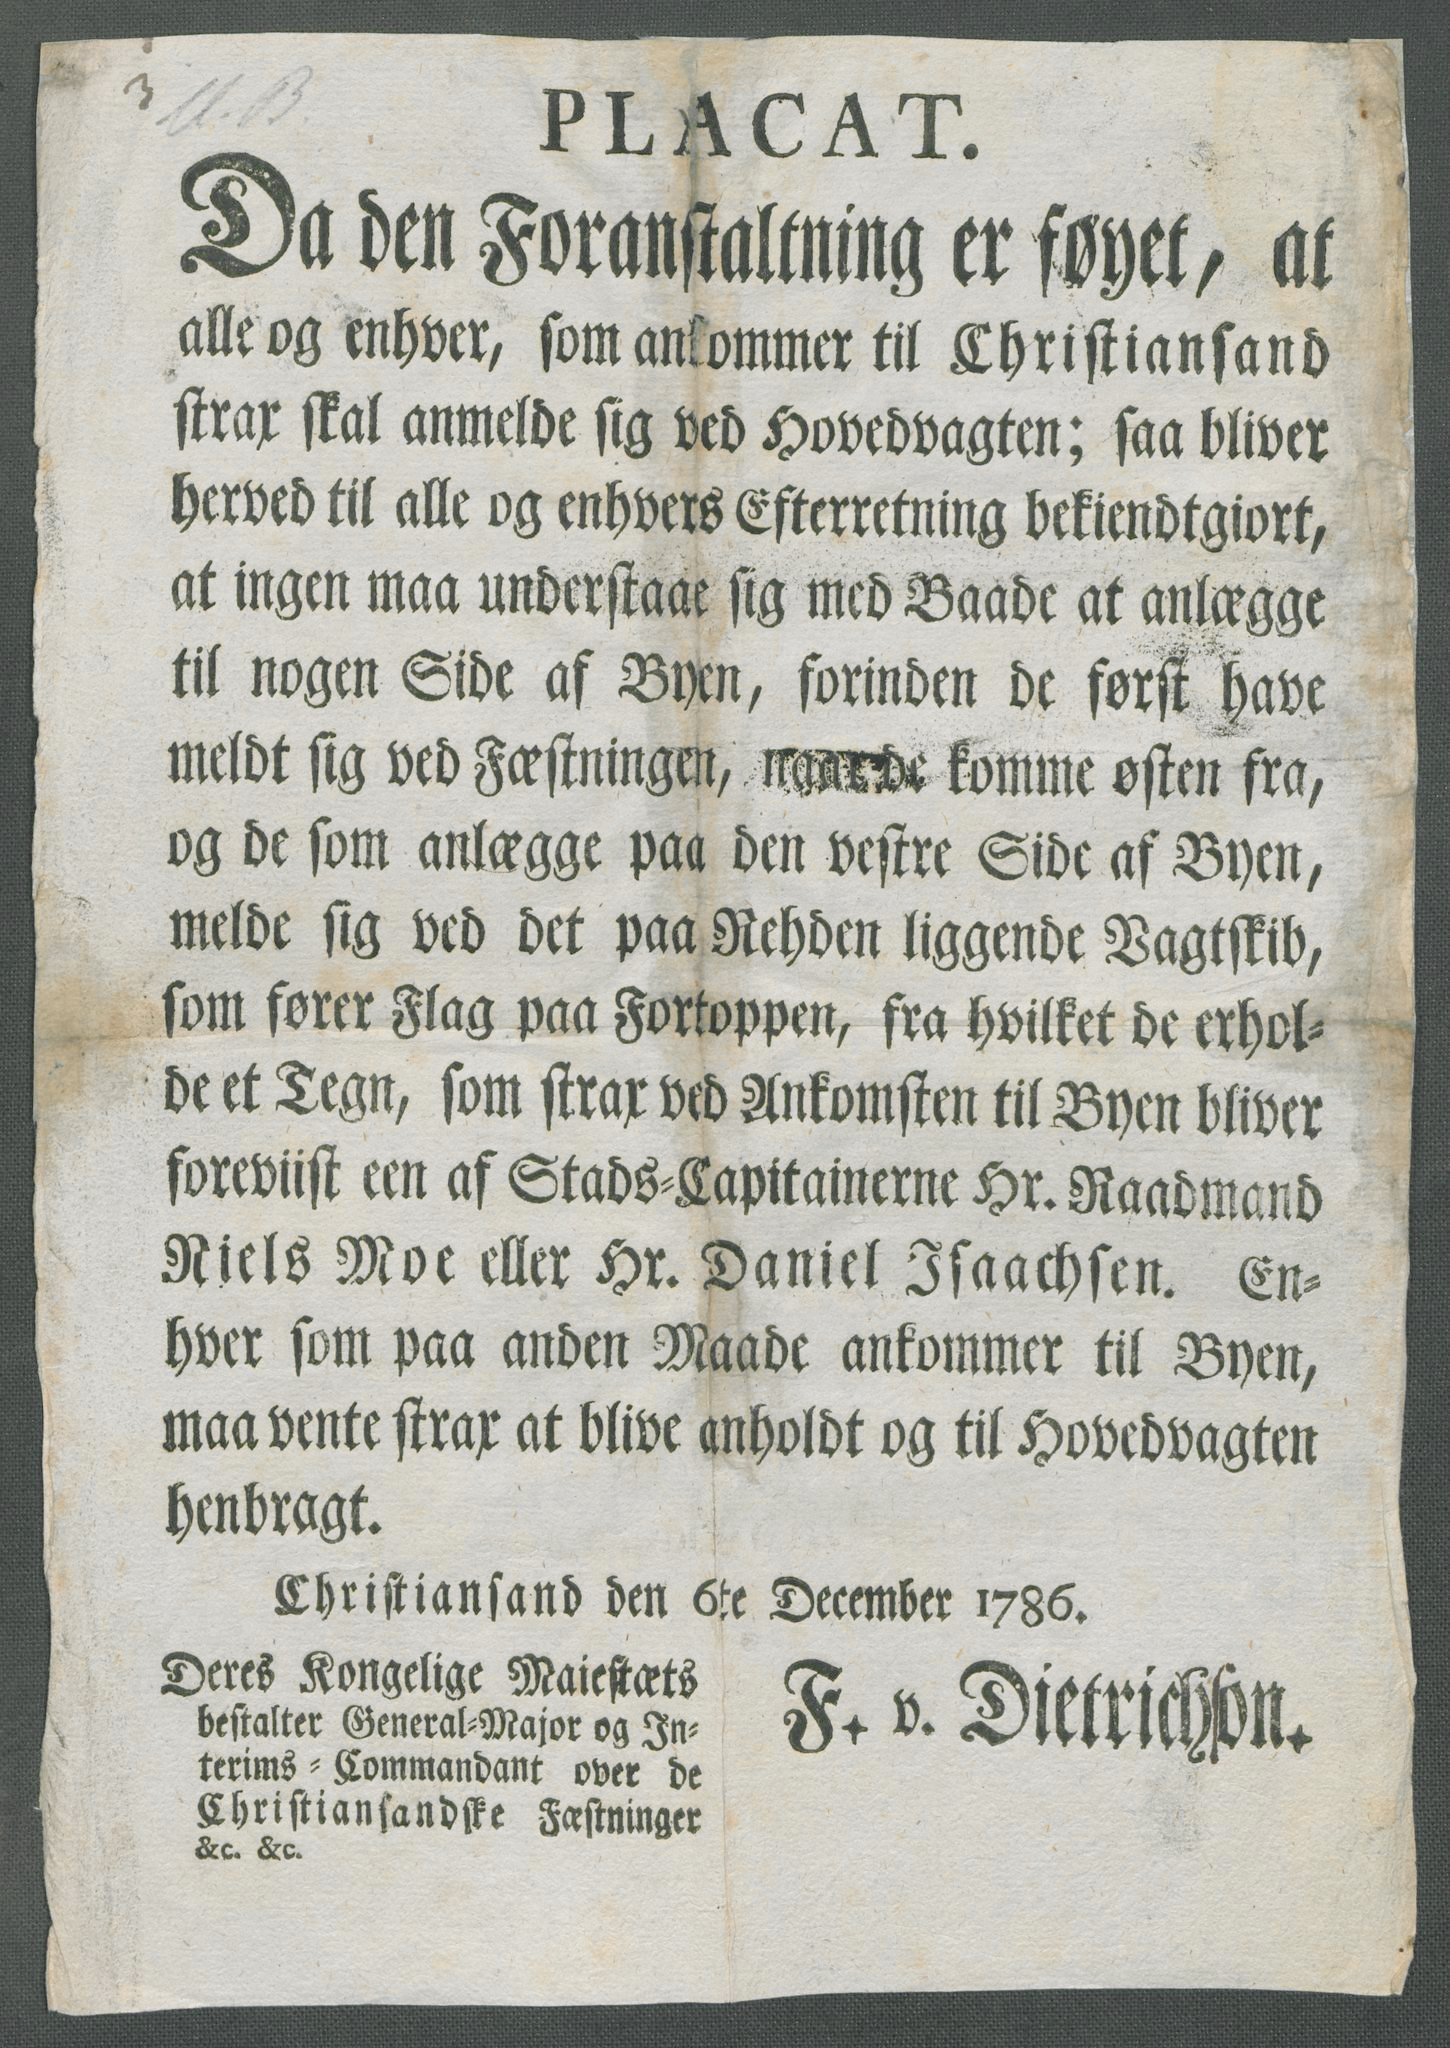 3
PLACAT.
Da den Foranstaltning er føyet, at
alle og enhver, som ankommer til Christiansand
strax skal anmelde sig ved Hovedvagten; saa bliver
herved til alle og enhvers Efterretning bekiendtgiort,
at ingen maa understaae sig med Baade at anlægge
til nogen Side af Byen, forinden de først have
meldt sig ved Fæstningen, naar de komme østen fra,
og de som anlægge paa den vestre Side af Byen,
melde sig ved det paa Rehden liggende Vagtskib,
som fører Flag paa Fortoppen, fra hvilket de erhol-
de et Tegn, som strax ved Ankomsten til Byen bliver
foreviist een af Stads-Capitainerne Hr. Raadmand
Niels Moe eller Hr. Daniel Isaachsen. En-
hver som paa anden Maade ankommer til Byen,
maa vente strax at blive anholdt og til Hovedvagten
henbragt.
Christiansand den 6te December 1786.
Deres Kongelige Maiestæts
bestalter General-Major og In-
terims-Commandant over de
Christiansandske Fæstninger
&c. &c.
F. v. Dietrichson.